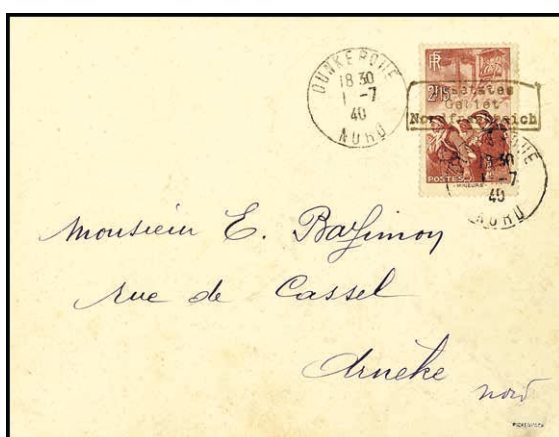 DUNKERQUE
18 30
1 -7
40
NORD
RF
2F15
Besetztes
Gebiet
Nordfrankreich
POSTES
MINEURS
DUNKERQUE
18 30
1 -7
40
NORD
Monsieur E.
rue de Cassel
Arnèke
nord